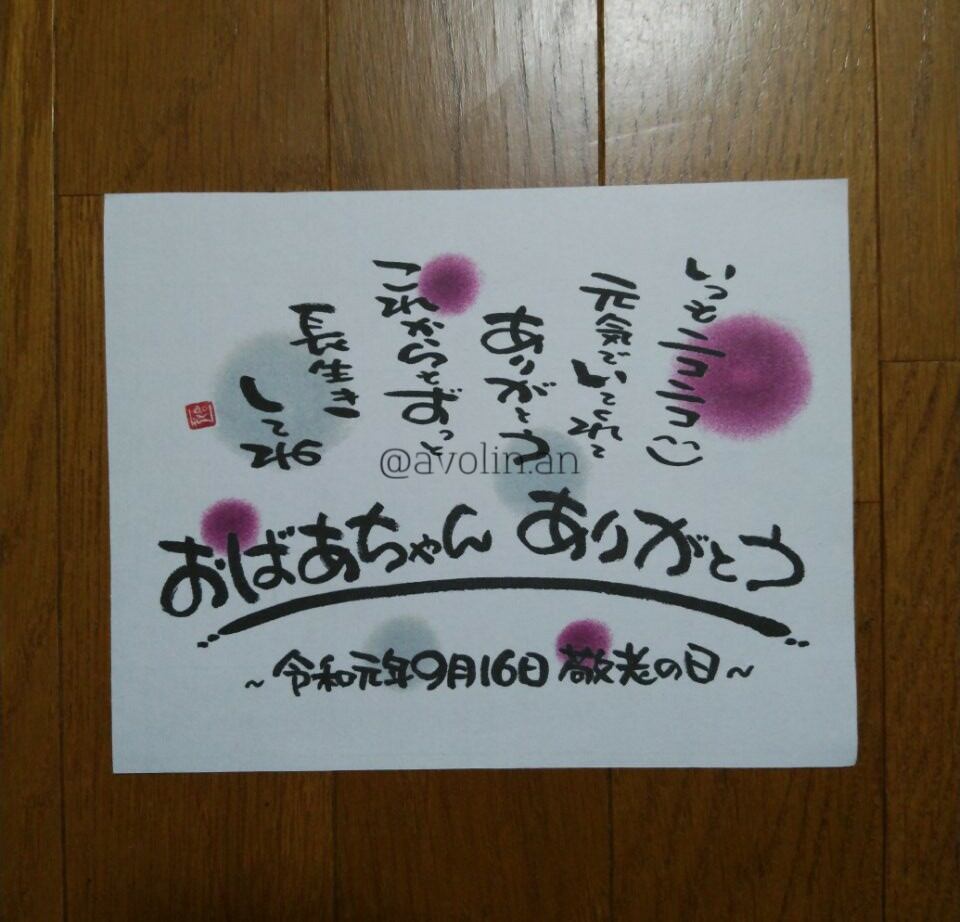 いつもニコニコ
元気でいてくれて
ありがとう
これからもずっと
長生き
してね
おばあちゃん ありがとう
~令和元年9月16日 敬老の日~
@avolin.an